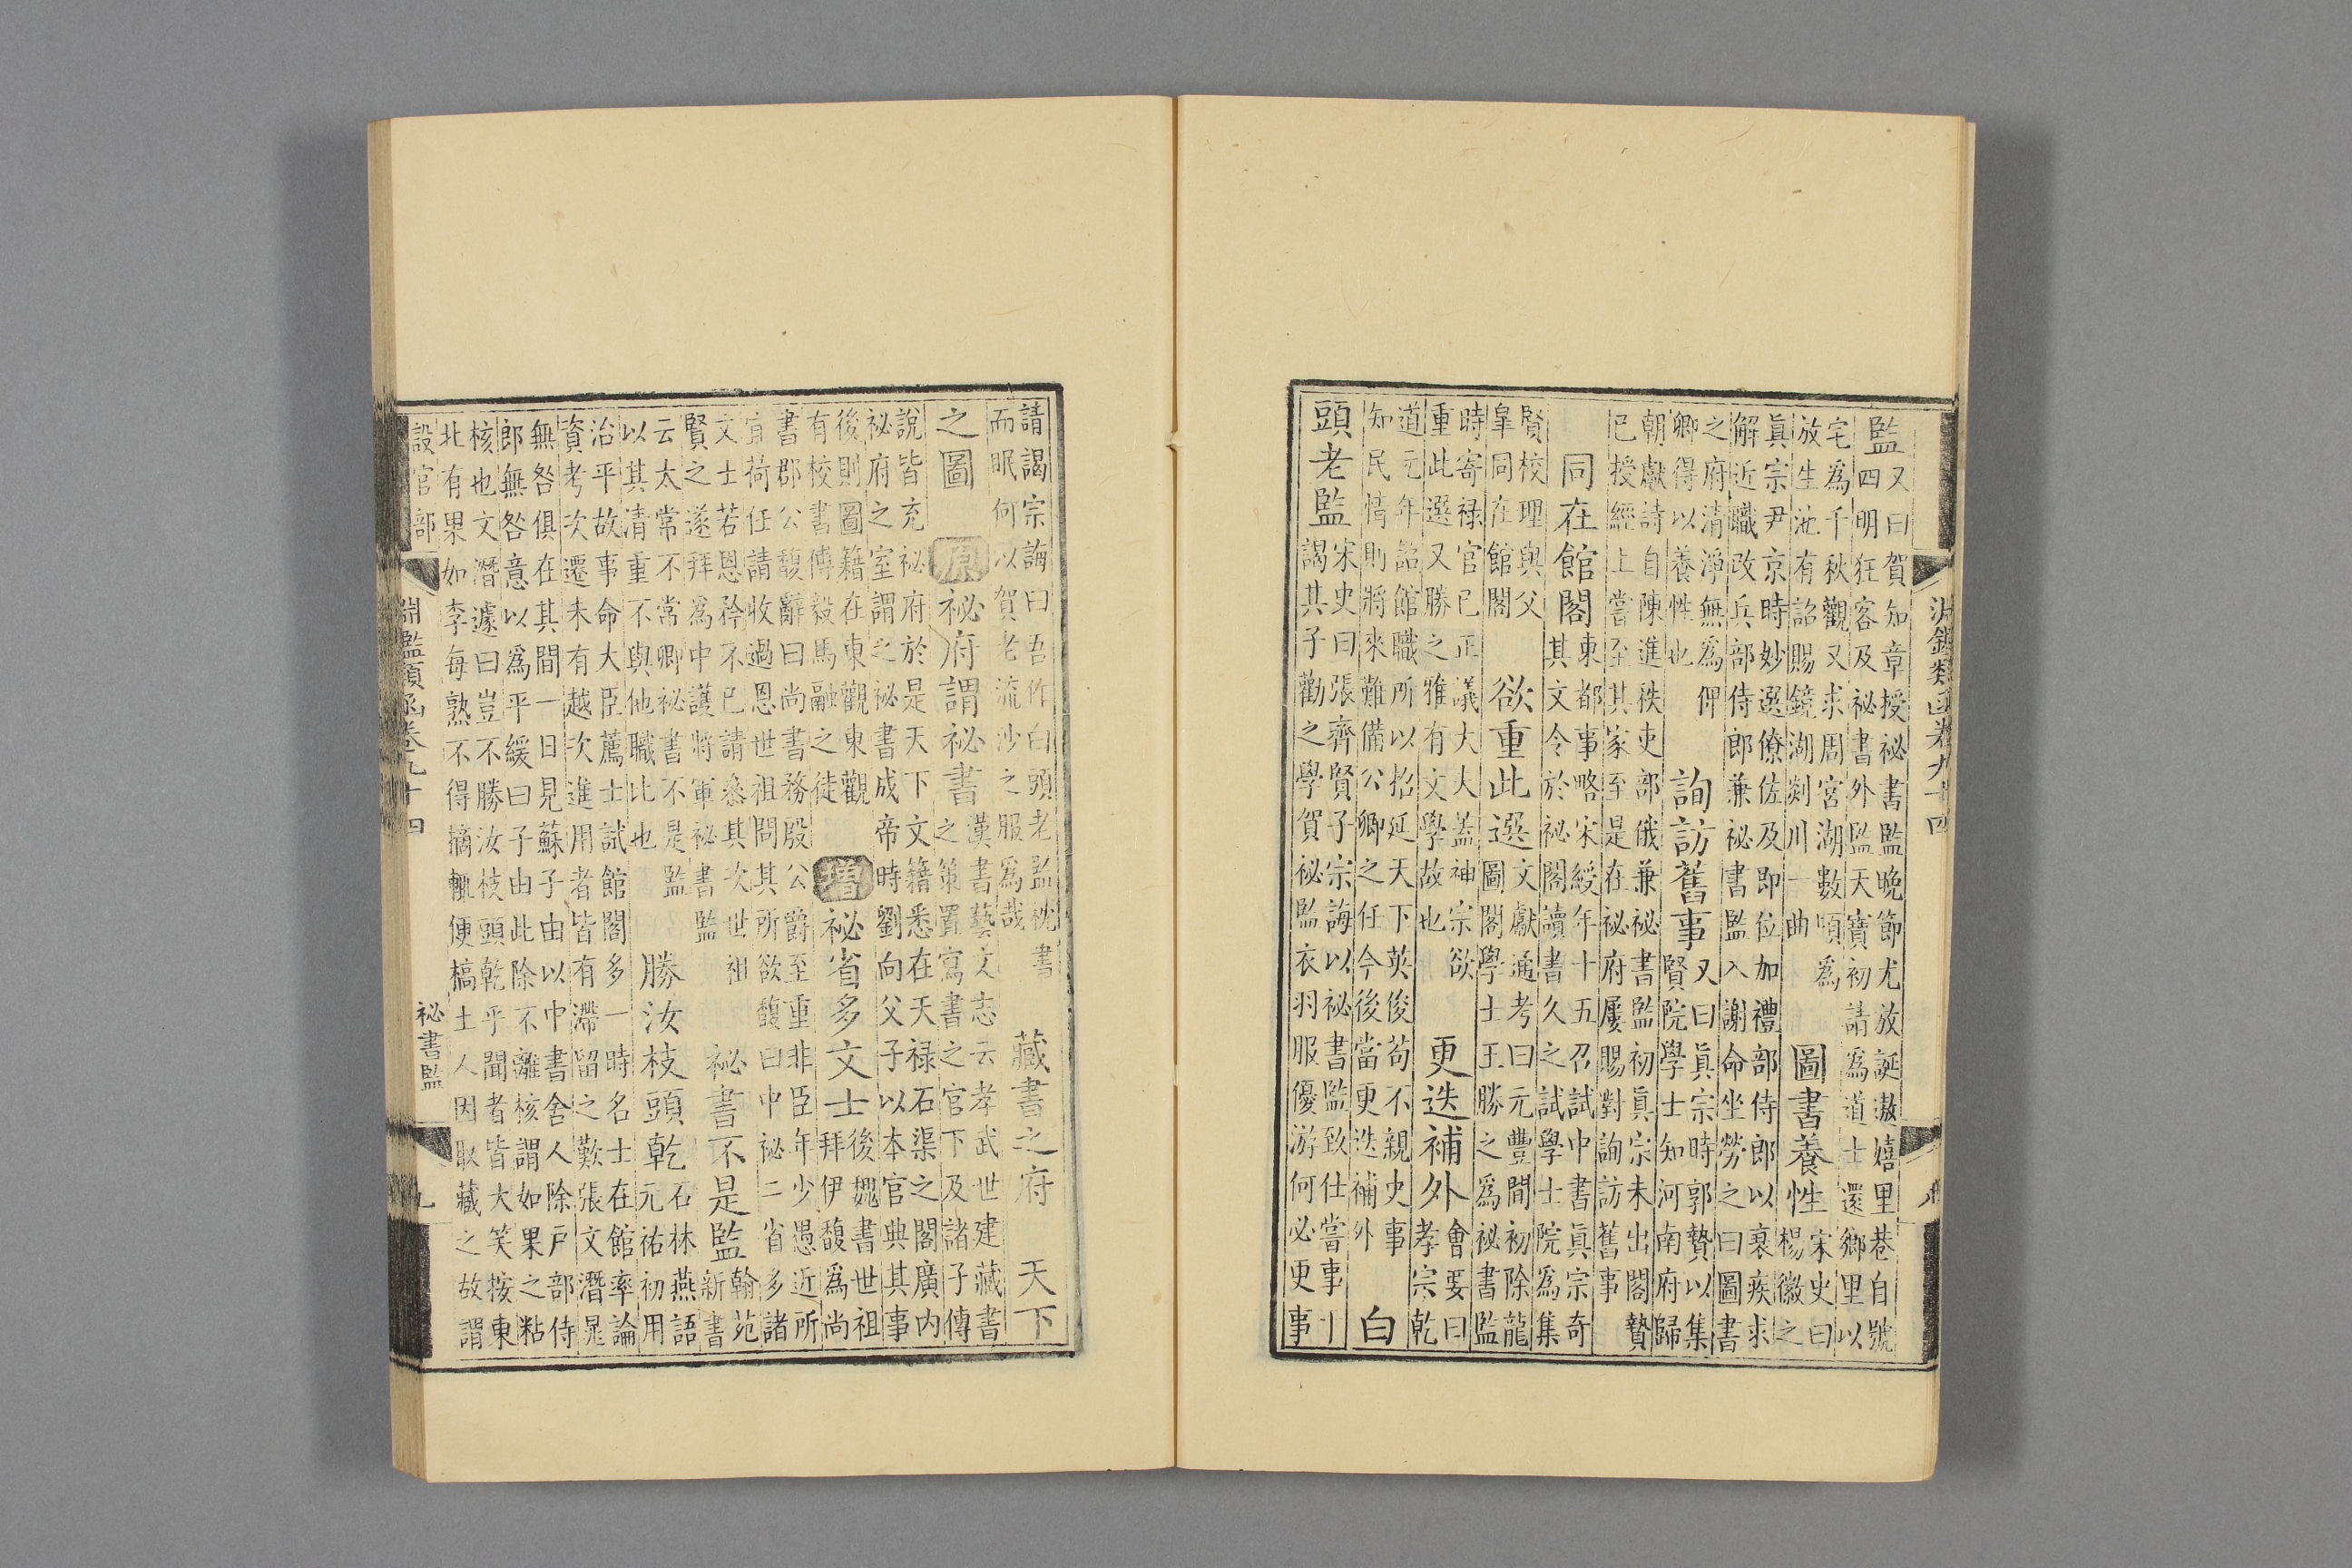 淵鑑類函卷九十四
監
又曰賀知章授祕書監晚節尤放誕遨嬉里巷自號
四明狂客及祕書外監天寶初請爲道士還鄉里以
宅爲千秋觀又求周宮湖數頃爲
放生池有詔賜鏡湖剡川一曲
圖書養性
宋史曰
楊徽之
眞宗尹京時妙選僚佐及即位加禮部侍郎以衰疾求
解近職改兵部侍郎兼祕書監入謝命坐勞之曰圖書
之府清淨無爲俾
卿得以養性也
詢訪舊事
又曰眞宗時郭贄以集
賢院學士知河南府歸
朝獻詩自陳進秩吏部俄兼祕書監初眞宗未出閣贄
已授經上嘗至其家至是在祕府屢賜對詢訪舊事
同在館閣
東都事略宋綬年十五召試中書眞宗奇
其文令於祕閣讀書久之試學士院爲集
賢校理與父
皐同在館閣
欲重此選
文獻通考曰元豐間初除龍
圖閣學士王勝之爲祕書監
時寄祿官已正議大大蓋神宗欲
重此選又勝之雅有文學故也
更迭補外
會要曰
孝宗乾
道元年詔館職所以招延天下英俊苟不親史事
知民情則將來難備公卿之任今後當更迭補外
白
頭老監
宋史曰張齊賢子宗誨以祕書監致仕當事十
謁其子勸之學賀祕監衣羽服優游何必更事
請謁宗誨曰吾作白頭老監枕書
而眠何以賀老流沙之服爲哉
藏書之府 天下
之圖 原 祕府謂祕書
漢書藝文志云孝武世建藏書
之策置寫書之官下及諸子傳
說皆充祕府於是天下文籍悉在天祿石渠之閣廣內
祕府之室謂之祕書成帝時劉向父子以本官典其事
後則圖籍在東觀東觀
有校書傅毅馬融之徒
增 祕省多文士
後魏書世祖
拜伊馥爲尚
書郡公馥辭曰尚書務殷公爵至重非臣年少愚近所
宜荷任請收過恩世祖問其所欲馥曰中祕二省多諸
文士若恩矜不已請悉其次世祖
賢之遂拜爲中護將軍祕書監
祕書不是監
翰苑
新書
云太常不常卿祕書不是監
以其清重不與他職比也
勝汝枝頭乾
石林燕語
元祐初用
治平故事命大臣薦士試館閣多一時名士在館率論
資考次遷未有越次進用者皆有滯留之歎張文潛晁
無咎俱在其間一日見蘇子由以中書舍人除戶部侍
郎無咎意以爲平緩曰子由此除不離核謂如果之粘
核也文潛遽曰豈不勝汝枝頭乾乎聞者皆大笑按東
北有果如李每熟不得摘輒便槁土人因取藏之故謂
設官部 淵鑑類函卷九十四 祕書監 九